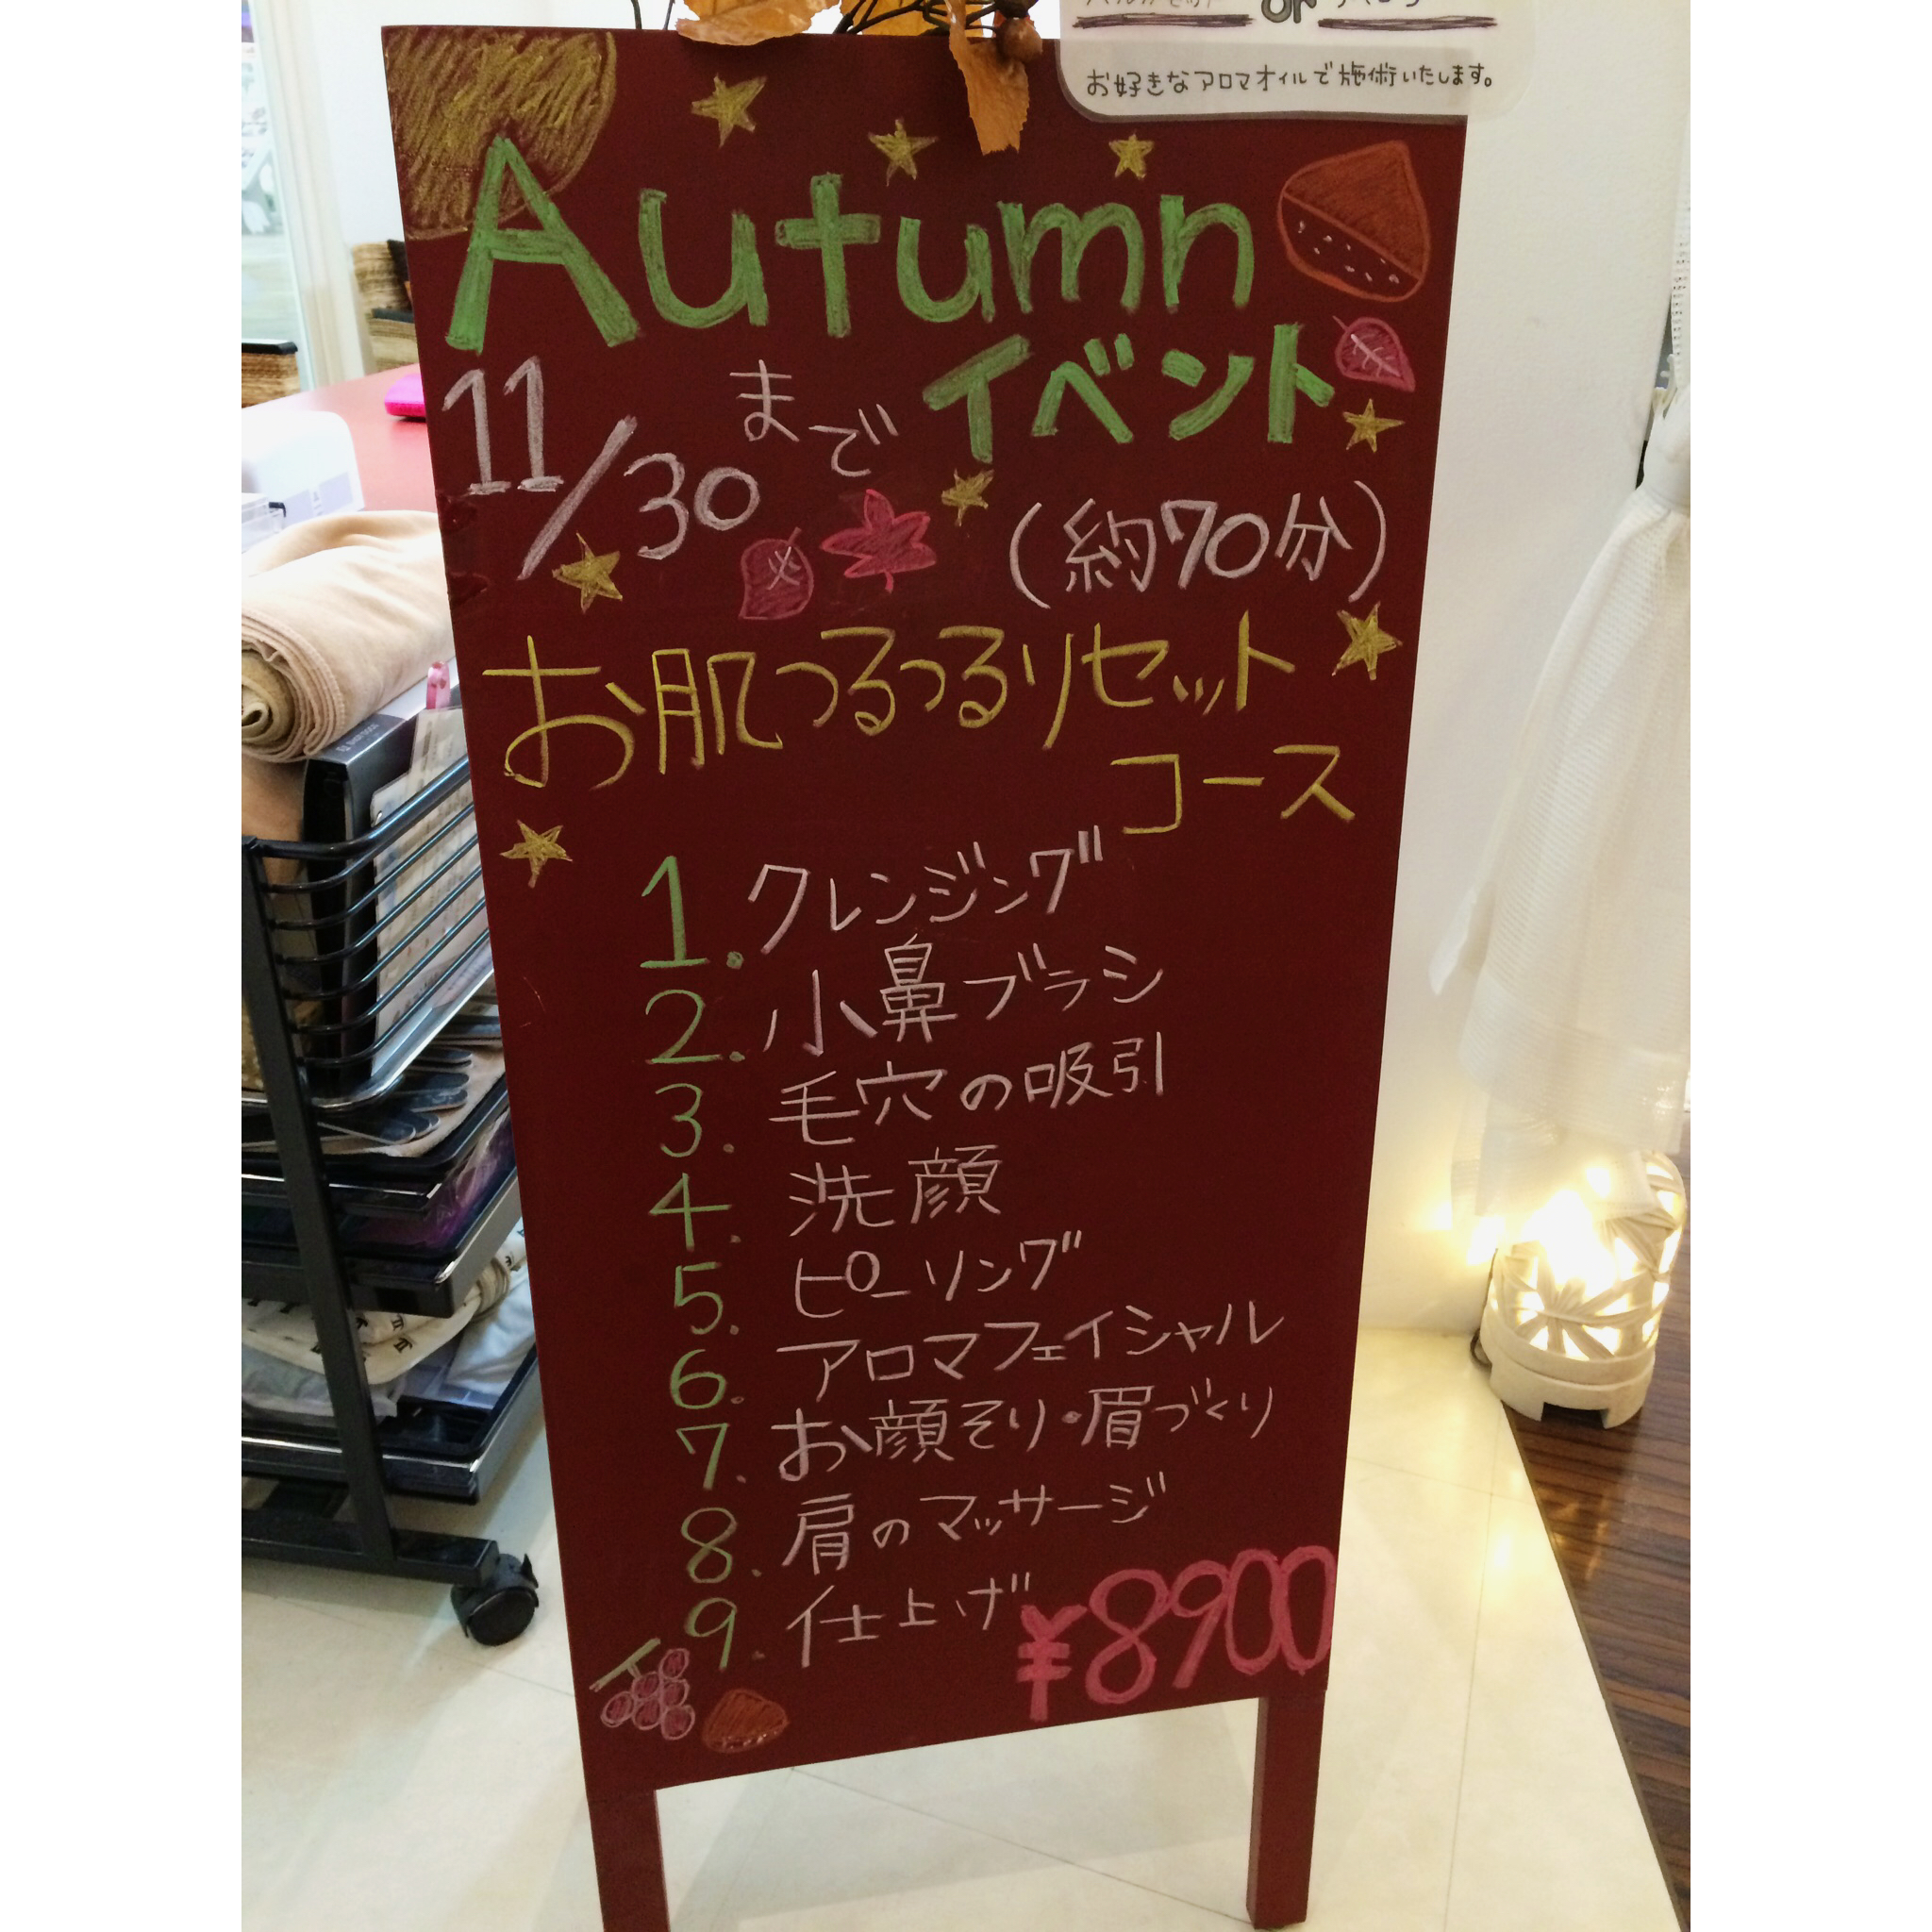 or
お好きなアロマオイルで施術いたします。
Autumn
イベント
11/30まで
(約70分)
お肌つるつるリセット
コース
1. クレンジング
2. 小鼻ブラシ
3. 毛穴の吸引
4. 洗顔
5. ピーリング
6. アロマフェイシャル
7. お顔そり・眉づくり
8. 肩のマッサージ
9. 仕上げ
¥8900